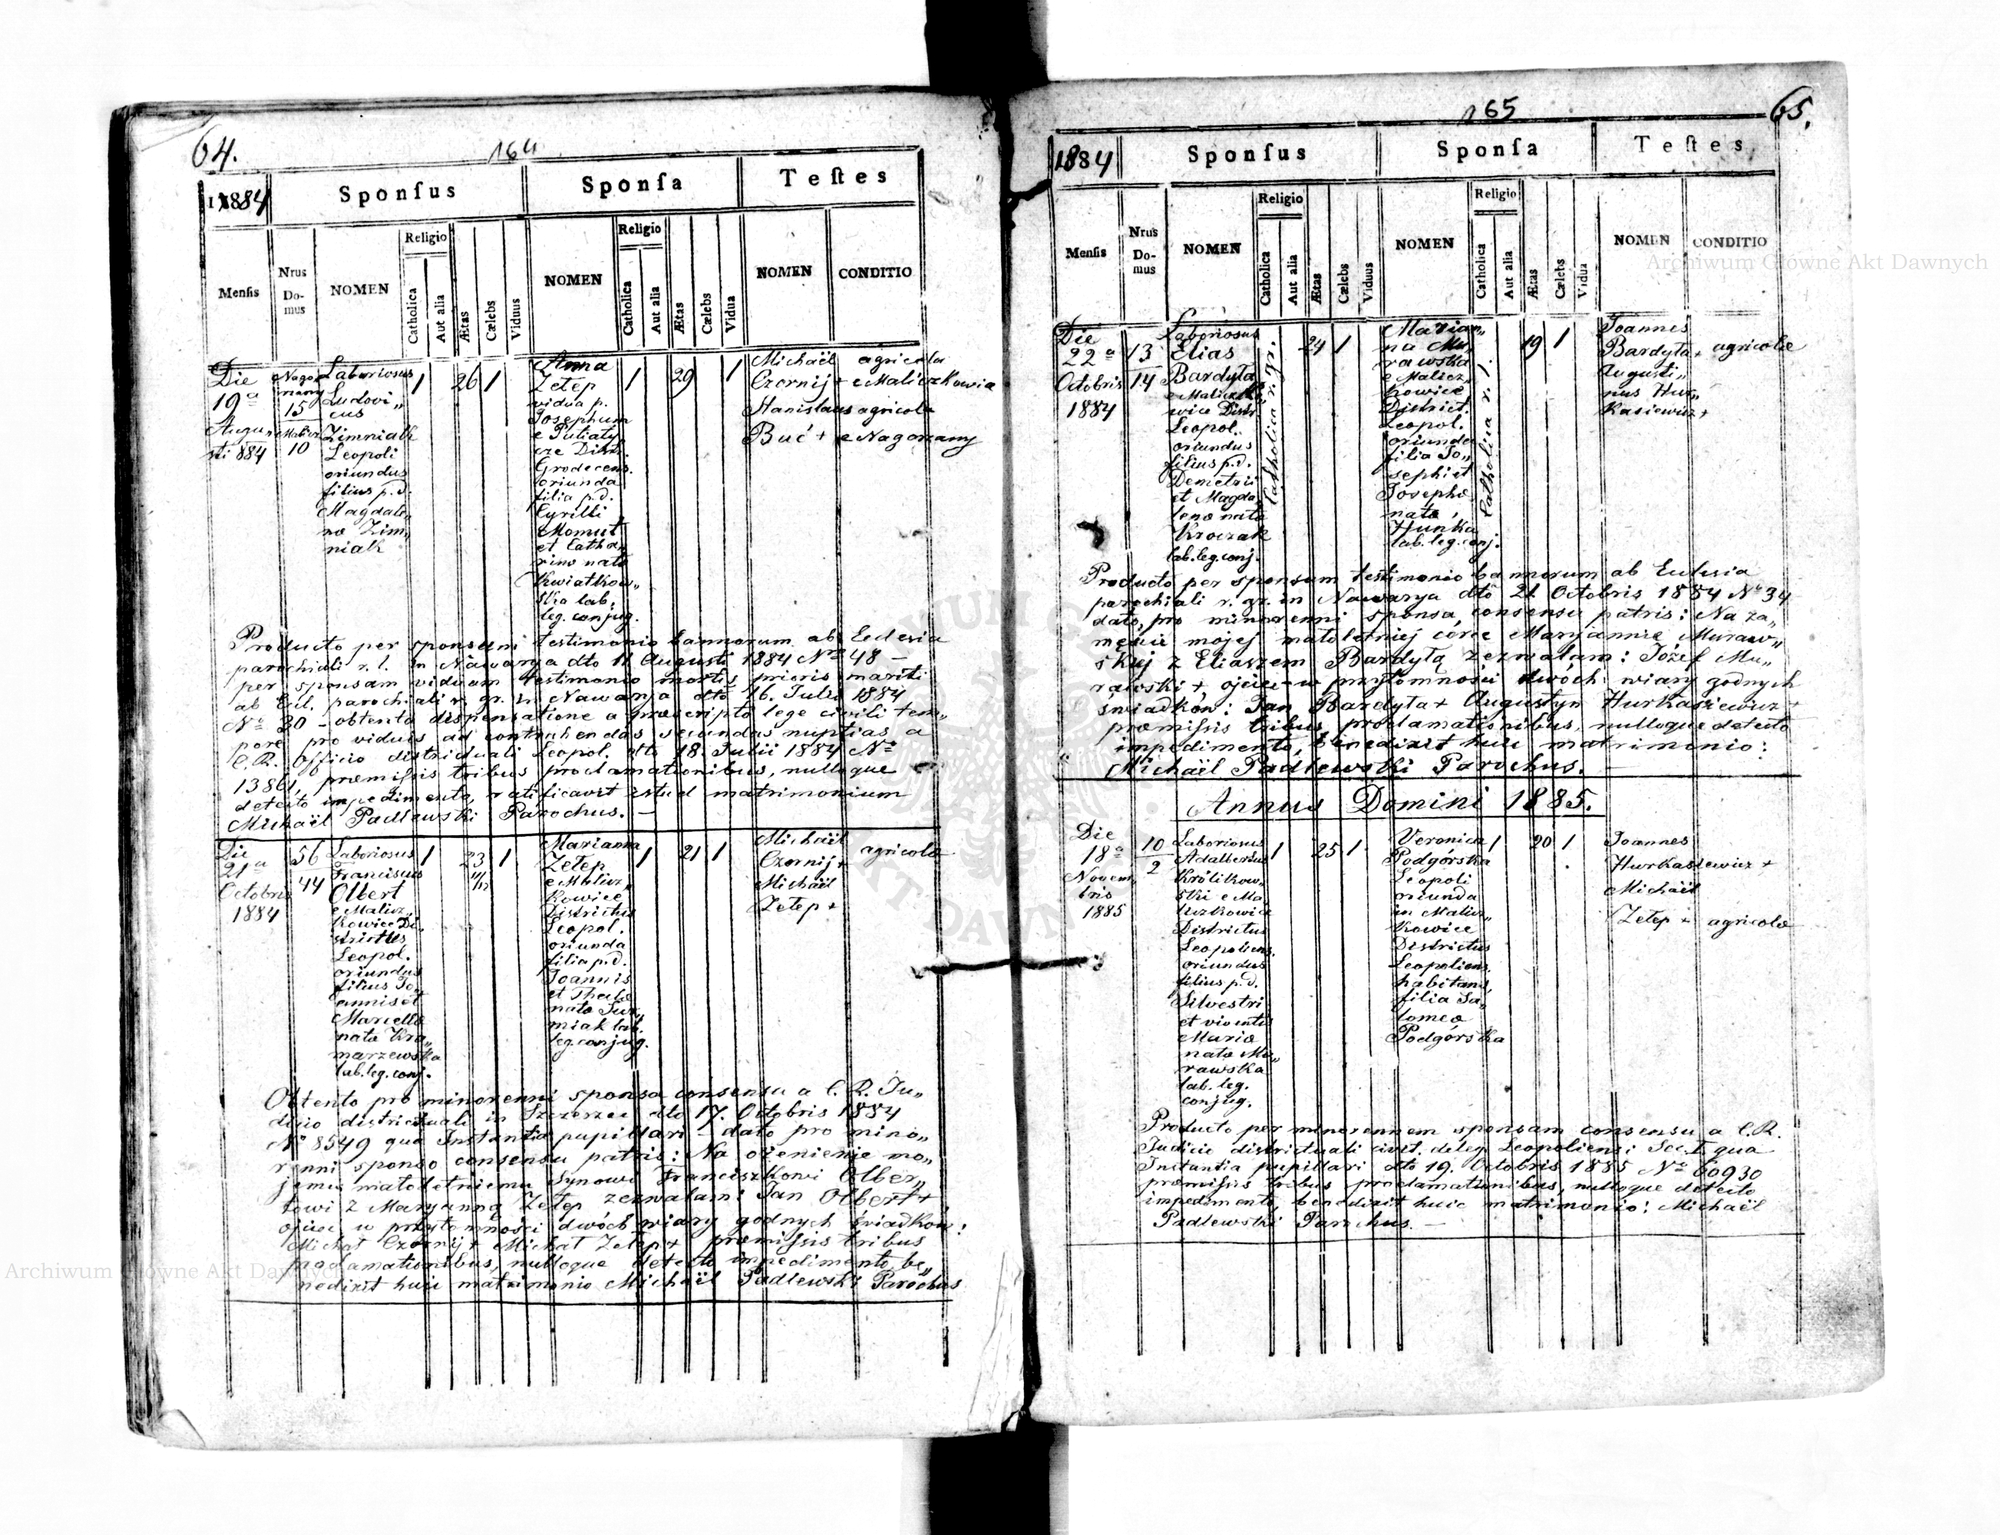 64.
164
1884
Sponſus
Sponſa
Teſtes
Menſis
Nrus Domus
NOMEN
Religio
Catholica
Aut alia
Ætas
Cælebs
Viduus
NOMEN
Religio
Catholica
Aut alia
Ætas
Cælebs
Vidua
NOMEN
CONDITIO
Die
19a
Augu
sti 884
Nagor
many
15
Malicz
10
Laboriosus
Ludovi„
cus
Zimniak
Leopoli
oriundus
filius p.d.
Magdale
næ Zim„
niak
1
26
1
Anna
Zełep
vidua p.
Josephum
e
Distr.
Grodecens.
oriunda
filia p.d.
Cyrilli
Momut
et Catha„
rinæ nata
Kwiatkow„
ska lab.
leg. conjug.
1
29
1
Michaël
Czornij +
Stanislaus
Buć +
agricola
e Maliczkowice
agricola
e Nagorzany
Producto per sponsum testimonio bannorum ab Ecclesia
parochiali r. l. in Nawarya dto 11 Augusti 1884 No 48 –
per sponsam viduam testimonio mortis prioris mariti
ab Eccl. parochiali r. gr. in Nawarya dto 16. Julii 1884
No 30 – obtenta dispensatione a præscripto lege civili tem„
pore pro viduis ad contrahendas secundas nuptias a
C. R. Officio districtuali Leopol. dto 18. Julii 1884 No
13861, præmissis tribus proclamationibus, nulloque
detecto impedimento, ratificavit istud matrimonium
Michaël Padlewski Parochus. –
Die
21a
Octobris
1884
56
44
Laboriosus
Franciscus
Olbert
e Malicz„
kowice Di„
strictus
Leopol.
oriundus
filius Jo„
annis et
Mariellæ
nata Kra„
marzewska
lab. leg. conj.
1
23
11/12
1
Marianna
Zełep
e Malicz„
kowice
Districtus
Leopol.
oriunda
filia p.d.
Joannis
et Theclæ
nata
lab.
leg. conjug.
1
21
1
Michaël
Czornij +
Michaël
Zełep +
agricolæ
Obtento pro minorenni sponsa consensu a C. R. Ju„
dicio districtuali in Szczerzec dto 17. Octobris 1884
No 8549 qua Instantia pupillari – dato pro mino„
renni sponso consensu patris: Na ożenienie mo„
jemu małoletniemu Synowi Franciszkowi Olber„
towi z Maryanną Zełep zezwalam: Jan Olbert +
ojciec w przytomności dwóch wiary godnych świadków:
Michał Czornij + Michał Zełep + præmissis tribus
proclamationibus, nulloque detecto impedimento, be„
nedixit huic matrimonio Michaël Padlewski Parochus
165
65.
1884
Sponſus
Sponſa
Teſtes
Menſis
Nrus Domus
NOMEN
Religio
Catholica
Aut alia
Ætas
Cælebs
Viduus
NOMEN
Religio
Catholica
Aut alia
Ætas
Cælebs
Vidua
NOMEN
CONDITIO
Die
22a
Octobris
1884
13
14
Laboriosus
Elias
Bardyta
e Maliczko
wice Distr
Leopol.
oriundus
filius p.d.
Demetrii
et Magda
lenæ nata
Kroczak
lab. leg. conj.
Catholica r. gr.
24
1
Marian„
na Mu
rawska
e Malicz„
kowice
District.
Leopol.
oriunda
filia Jo„
sephi et
Josephæ
nata
Hunka
lab. leg. conj.
Catholica r. l.
19
1
Joannes
Bardyta +
Augusti„
nus Hur„
kasiewicz +
agricolæ
Producto per sponsum testimonio bannorum ab Ecclesia
parochiali r. gr. in Nawarya dto 21 Octobris 1884 No 34
dato pro minorenni sponsa, consensu patris: Na za„
męście mojej małoletniej córce Maryannie Muraw„
skiej z Eliaszem Bardytą zezwalam: Józef Mu„
rawski + ojciec – w przytomności dwóch wiary godnych
świadków: Jan Bardyta + Augustyn Hurkasiewicz +
præmissis tribus proclamationibus, nulloque detecto
impedimento, benedixit huic matrimonio:
Michaël Padlewski Parochus.
Annus Domini 1885.
Die
18a
Novem„
bris
1885
10
2
Laboriosus
Adalbertus
Królikow„
ski e Ma
liczkowice
Districtus
Leopoliens.
oriundus
filius p.d.
Silvestri
et viventis
Mariæ
nata Mu„
rawska
lab. leg.
conjug.
1
25
1
Veronica
Podgórska
Leopoli
oriunda
in Malicz„
kowice
Districtus
Leopoliens.
habitans,
filia Sa„
lomeæ
Podgórska
1
20
1
Joannes
Hurkasiewicz +
Michaël
Zełep +
agricolæ
Producto per minorennem sponsam consensu a C. R.
Judicio districtuali civit. deleg. Leopoliensi Sec. I qua
Instantia pupillari dto 19. Octobris 1885 No 60930
præmissis tribus proclamationibus, nulloque detecto
impedimento, benedixit huic matrimonio: Michaël
Padlewski Parochus. –
Archiwum Główne Akt Dawnych
Archiwum Główne Akt Dawnych